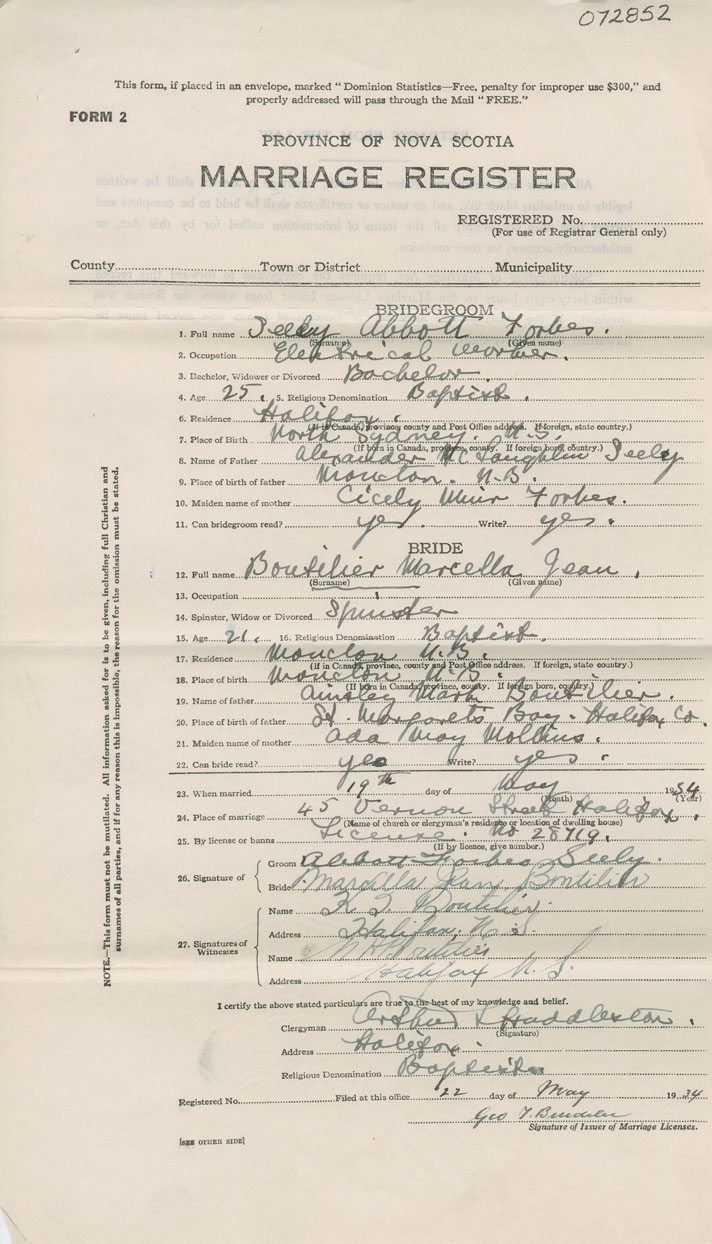 072852
This form, if placed in an envelope, marked "Dominion Statistics—Free, penalty for improper use $300," and
properly addressed will pass through the Mail "FREE."
FORM 2
PROVINCE OF NOVA SCOTIA
MARRIAGE REGISTER
REGISTERED No.
(For use of Registrar General only)
County Town or District Municipality
BRIDEGROOM
1. Full name Seeley Abbott Forbes.
(Surname) (Given name)
2. Occupation Electrical Worker.
3. Bachelor, Widower or Divorced Bachelor.
4. Age 25. 5. Religious Denomination Baptist.
6. Residence Halifax.
(If in Canada, province, county and Post Office address. If foreign, state country.)
7. Place of Birth North Sydney. N.S.
(If born in Canada, province, county. If foreign born, country.)
8. Name of Father Alexander McLaughlin Seely
9. Place of birth of father Moncton. N.B.
10. Maiden name of mother Cicely Muir Forbes.
11. Can bridegroom read? yes. Write? yes.
BRIDE
12. Full name Boutilier Marcella Jean.
(Surname) (Given name)
13. Occupation
14. Spinster, Widow or Divorced Spinster
15. Age 21. 16. Religious Denomination Baptist.
17. Residence Moncton N.B.
(If in Canada, province, county and Post Office address. If foreign, state country.)
18. Place of birth Moncton N.B.
(If born in Canada, province, county. If foreign born, country.)
19. Name of father Ainsley Mark Boutilier.
20. Place of birth of father St. Margarets Bay. Halifax Co.
21. Maiden name of mother Ada May Mollins.
22. Can bride read? yes Write? yes.
23. When married 19th day of May 1934
(Month) (Year)
24. Place of marriage 45 Vernon Street Halifax.
(Name of church or clergyman's residence or location of dwelling house)
25. By license or banns License. No 28719.
(If by licence, give number.)
26. Signature of
Groom Abbott Forbes Seely.
Bride Marcella Jean Boutilier
27. Signatures of Witnesses
Name Boutilier
Address Halifax, N.S.
Name Boutilier
Address Halifax N.S.
I certify the above stated particulars are true to the best of my knowledge and belief.
Clergyman Arthur Huddleston.
(Signature)
Address Halifax.
Religious Denomination Baptist
Registered No. Filed at this office 22 day of May 1934
Geo
Signature of Issuer of Marriage Licenses.
[SEE OTHER SIDE]
NOTE.—This form must not be mutilated. All information asked for is to be given, including full Christian and
surnames of all parties, and if for any reason this is impossible, the reason for the omission must be stated.